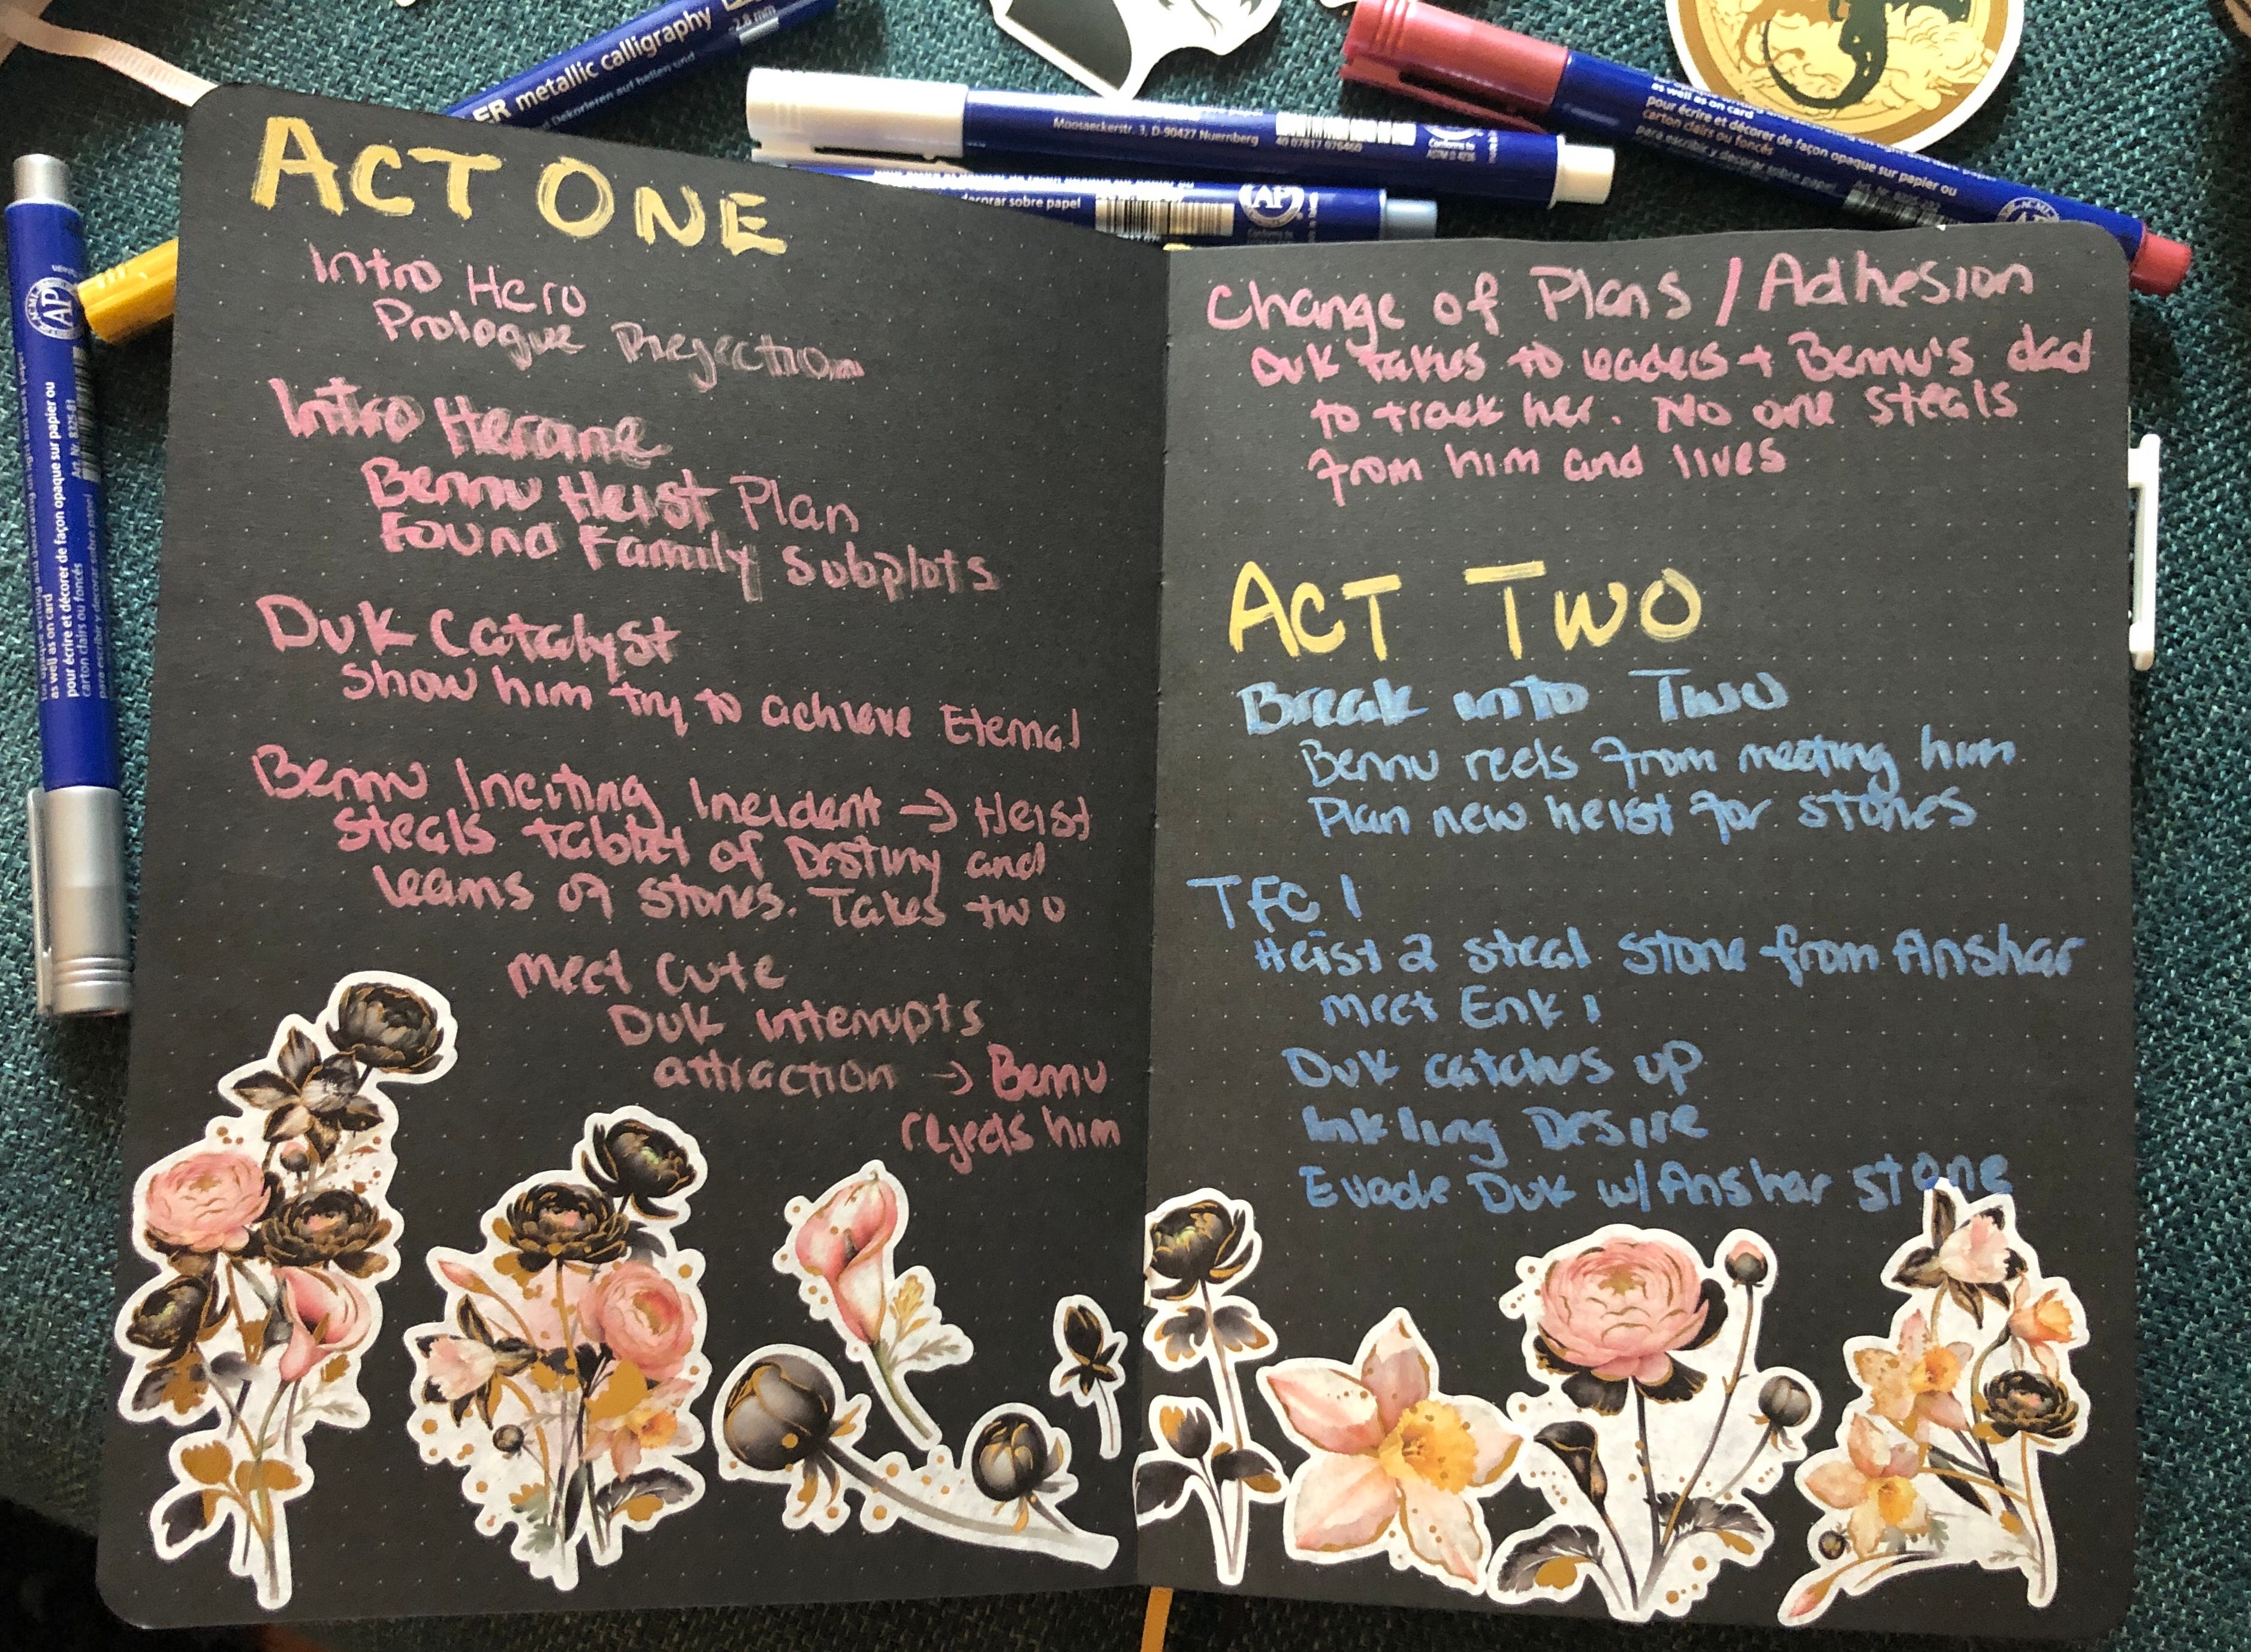 ER metallic calligraphy
2.8 mm
Dekorieren auf hellen und
Moosaeckerstr. 3, D-90427 Nuernberg
40 07817 076460
Conforms to
ASTM D 4236
decorar sobre papel
AP
as well as on card
pour écrire et décorer de façon opaque sur papier ou
carton clairs ou foncés
para escribir y decorar sobre papel
AP
as well as on card
pour écrire et décorer de façon opaque sur papier ou
carton clairs ou foncés
para escribir y decorar sobre papel
Art. Nr. 8325-81
ACT ONE
Intro Hero
Prologue Rejection
Intro Heroine
Bennu Heist Plan
Found Family Subplots
Duk Catalyst
Show him try to achieve Eternal
Bennu Inciting Incident → Heist
Steals Tablet of Destiny and
learns of stones. Takes two
Meet Cute
Duk interrupts
attraction → Bennu
rejects him
Change of Plans / Adhesion
Duk talks to leaders + Bennu's dad
to track her. No one steals
from him and lives
ACT TWO
Break into Two
Bennu reels from meeting him
Plan new heist for stones
TFC 1
Heist 2 steal stone from Anshar
Meet Enki
Duk catches up
Inkling Desire
Evade Duk w/Anshar stone